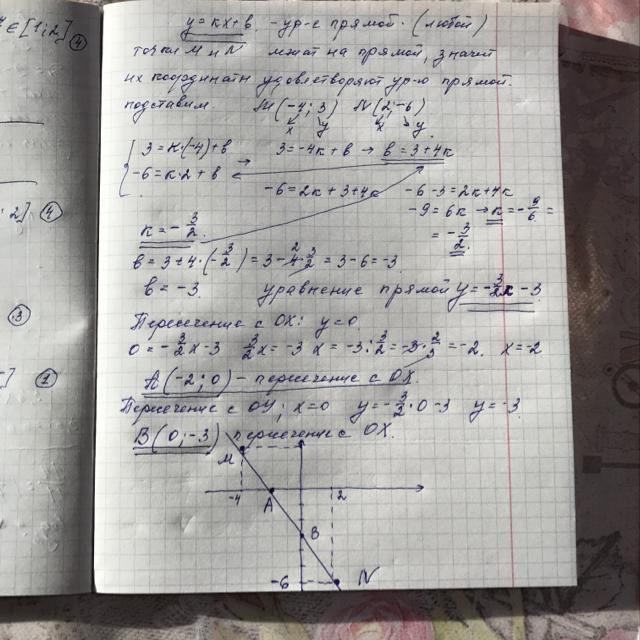 y = kx + b. - ур-е прямой. (любой)
∈ [1; 2] 4
точки M и N лежат на прямой, значит
их координаты удовлетворяют ур-ю прямой.
подставим. M(-4; 3) N(2; -6)
x y x y
3 = k·(-4) + b → 3 = -4k + b → b = 3 + 4k
-6 = k·2 + b
-6 = 2k + 3 + 4k -6 - 3 = 2k + 4k
2] 4
-9 = 6k → k = -9/6 =
k = -3/2. = -3/2.
b = 3 + 4·(-3/2) = 3 - 4·3/2 = 3 - 6 = -3
b = -3. уравнение прямой y = -3/2x - 3
3
Пересечение с OX: y = 0
0 = -3/2x - 3 3/2x = -3 x = -3 : 3/2 = -3·2/3 = -2. x = -2
1
A(-2; 0) - пересечение с OX.
Пересечение с OY; x = 0 y = -3/2·0 - 3 y = -3.
B(0; -3) пересечение с OX.
M
-4 2
A
B
-6 N